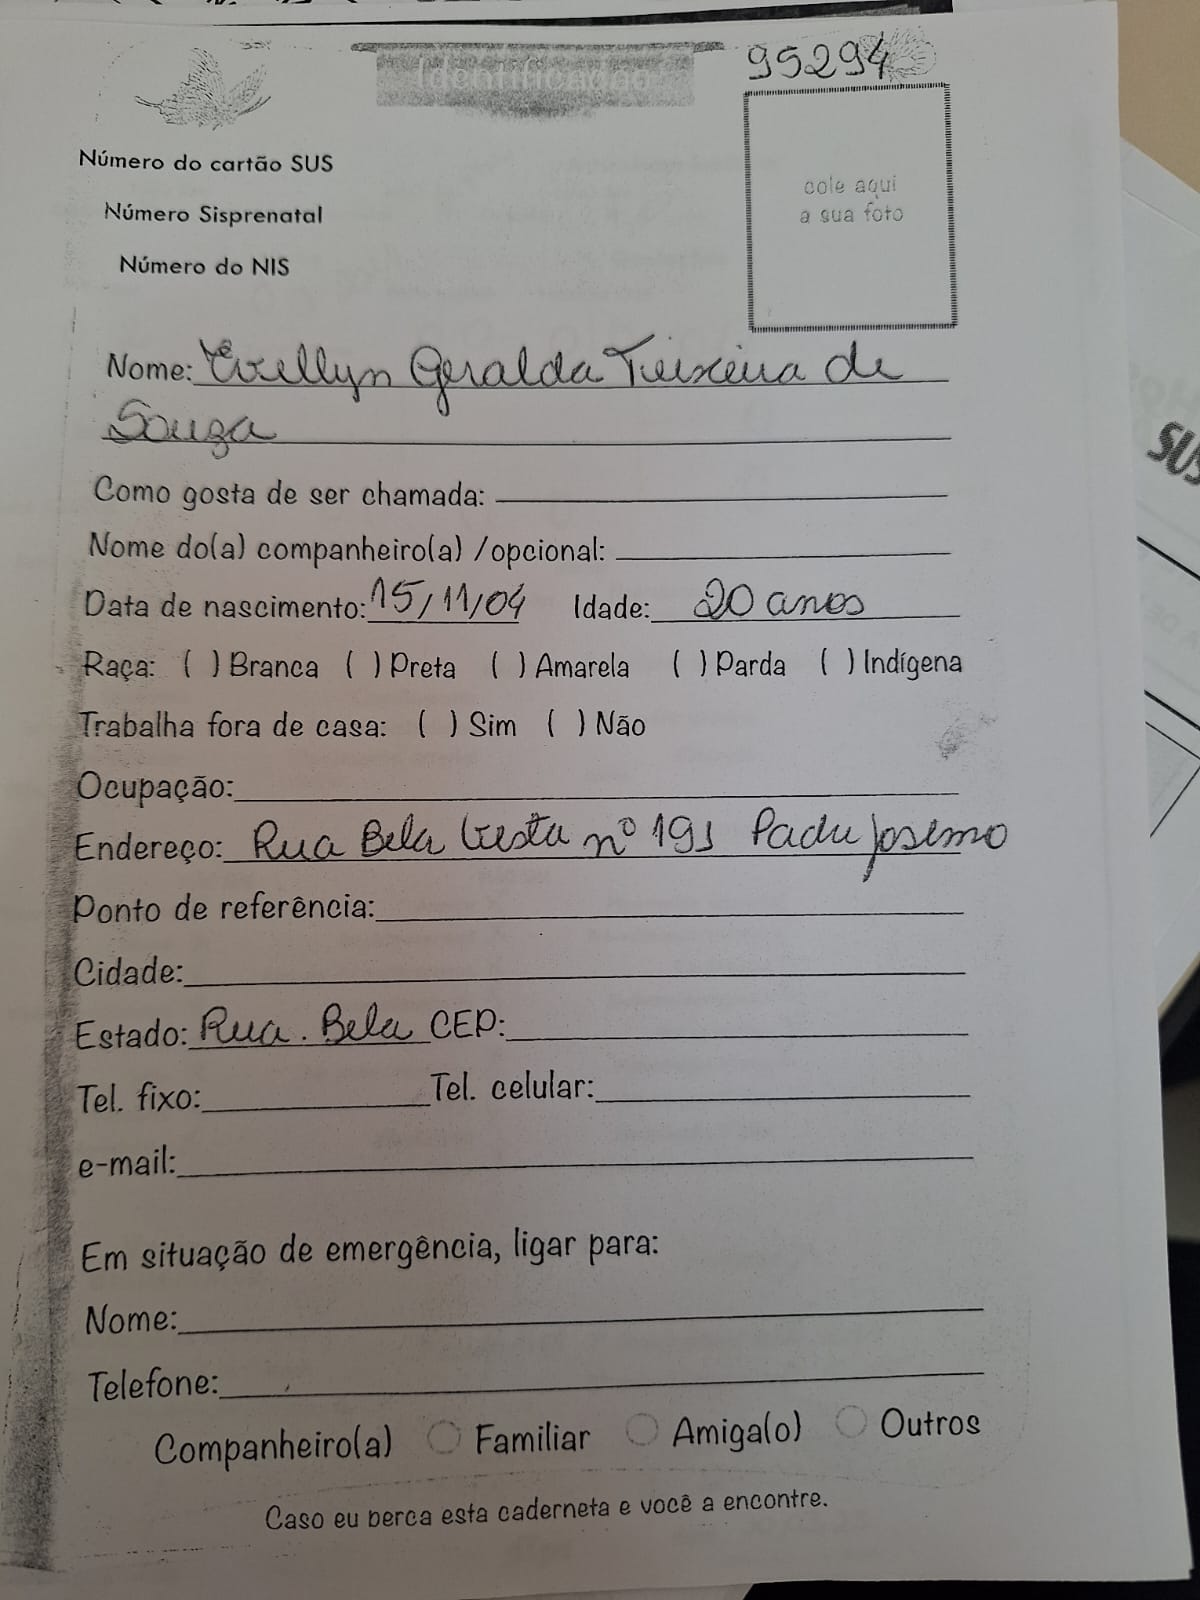 Identificação
95294
cole aqui
a sua foto
Número do cartão SUS
Número Sisprenatal
Número do NIS
Nome: Evellyn Geralda Teixeira de
Souza
Como gosta de ser chamada:
Nome do(a) companheiro(a) /opcional:
Data de nascimento: 15/11/04 Idade: 20 anos
Raça: ( ) Branca ( ) Preta ( ) Amarela ( ) Parda ( ) Indígena
Trabalha fora de casa: ( ) Sim ( ) Não
Ocupação:
Endereço: Rua Bela Vista nº 191
Ponto de referência:
Cidade:
Estado: Rua. Bela CEP:
Tel. fixo: Tel. celular:
e-mail:
Em situação de emergência, ligar para:
Nome:
Telefone:
Companheiro(a) Familiar Amiga(o) Outros
Caso eu perca esta caderneta e você a encontre.
SUS